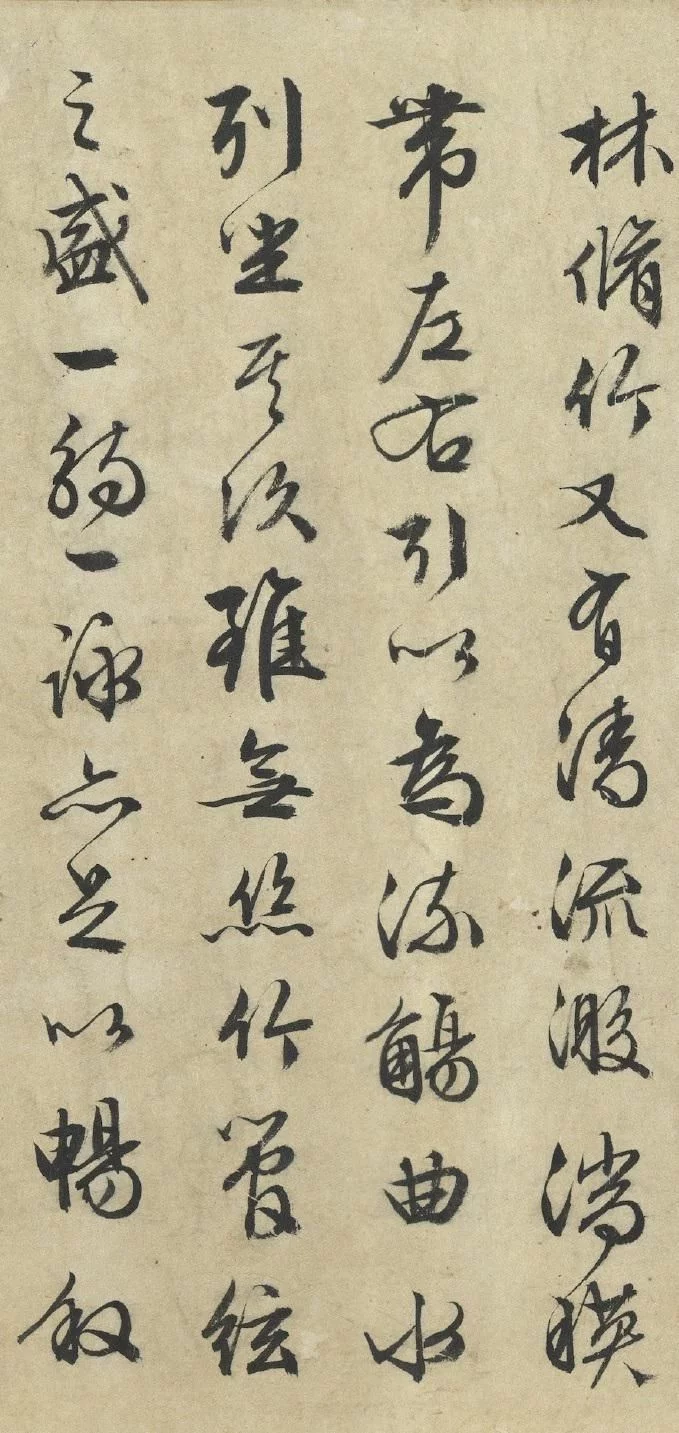 林脩竹又有清流激湍暎
帶左右引以為流觴曲水
列坐其次雖無絲竹管絃
之盛一觴一詠亦足以暢敘